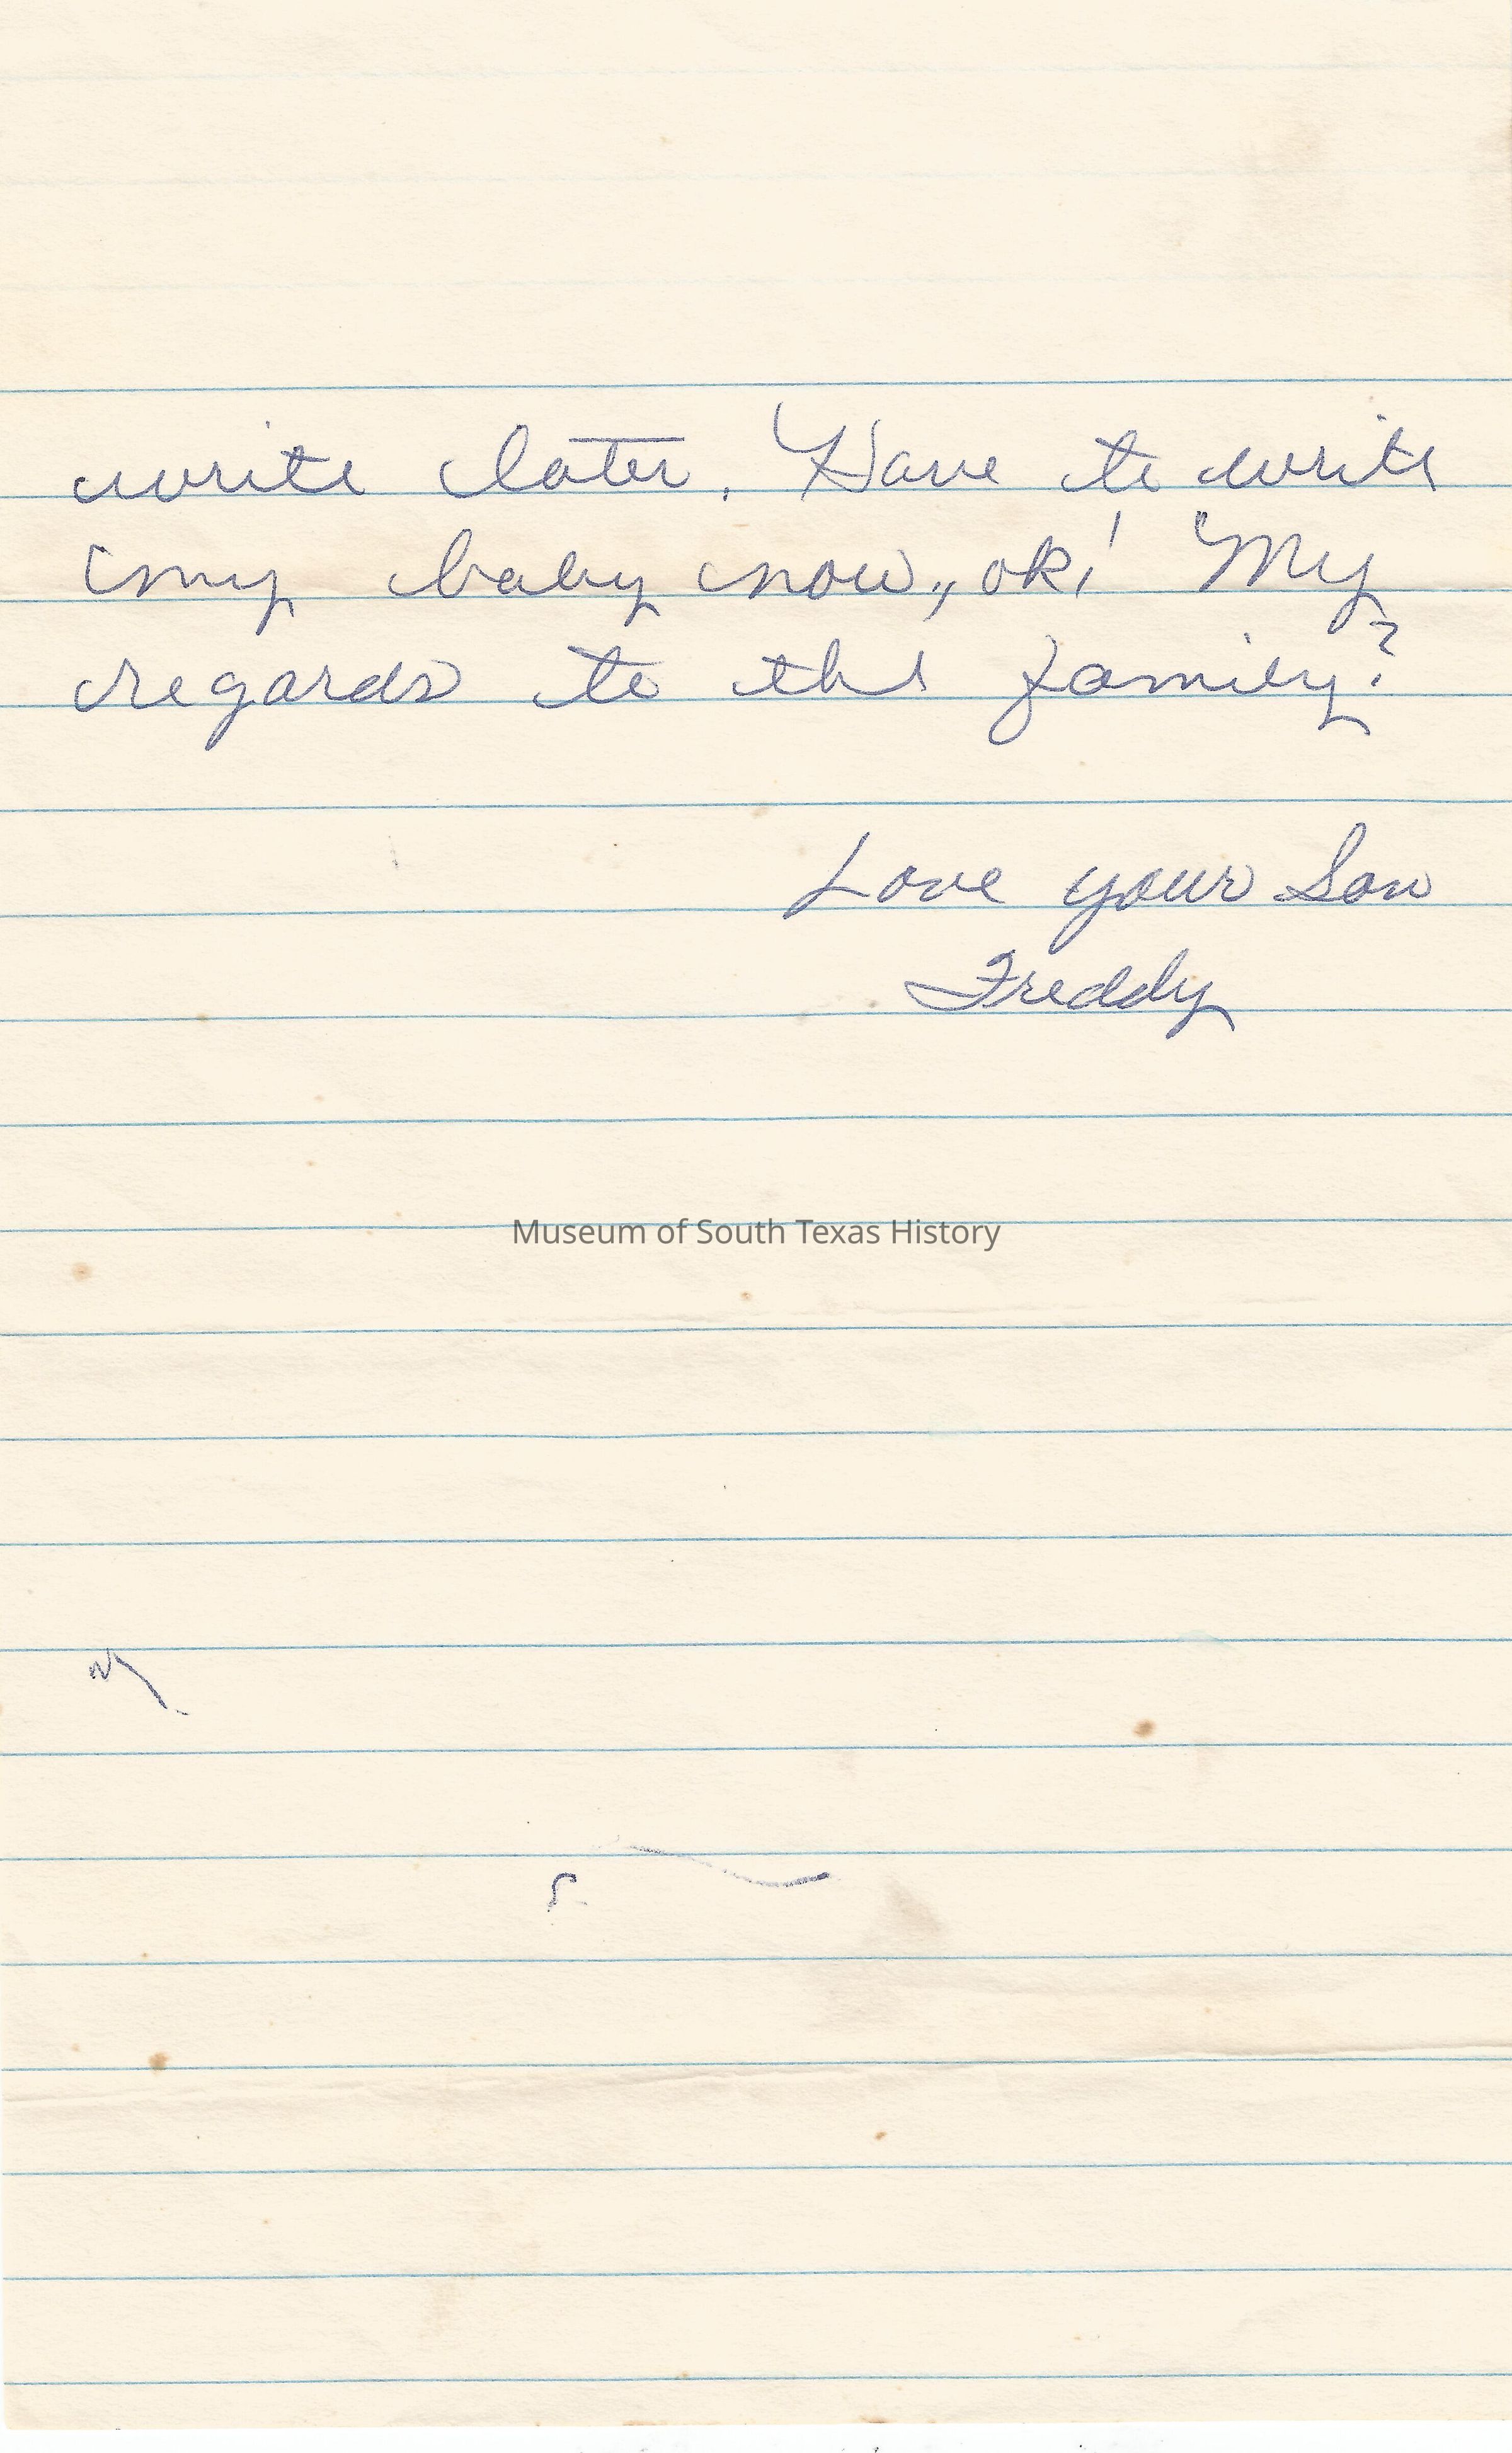 write later. Have to write
my baby now,, ok! My
regards to the family?
Love your Son
Freddy
Museum of South Texas History